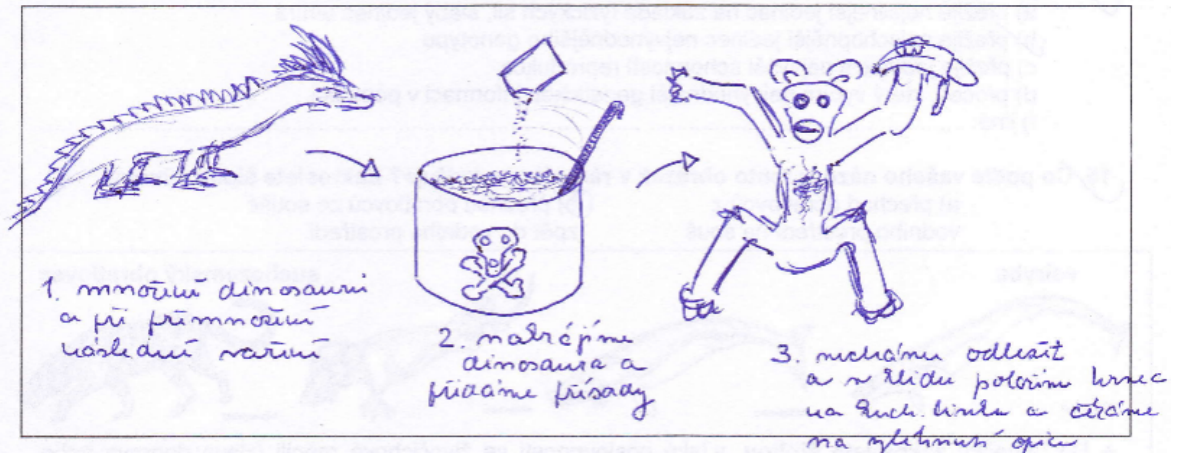 1. množení dinosaurů
a při přemnožení
následné vaření
2. nakrájíme
dinosaura a
přidáme přísady
3. necháme odležit
a v klidu položíme hrnec
na kuch. linku a čekáme
na vylehnutí opice